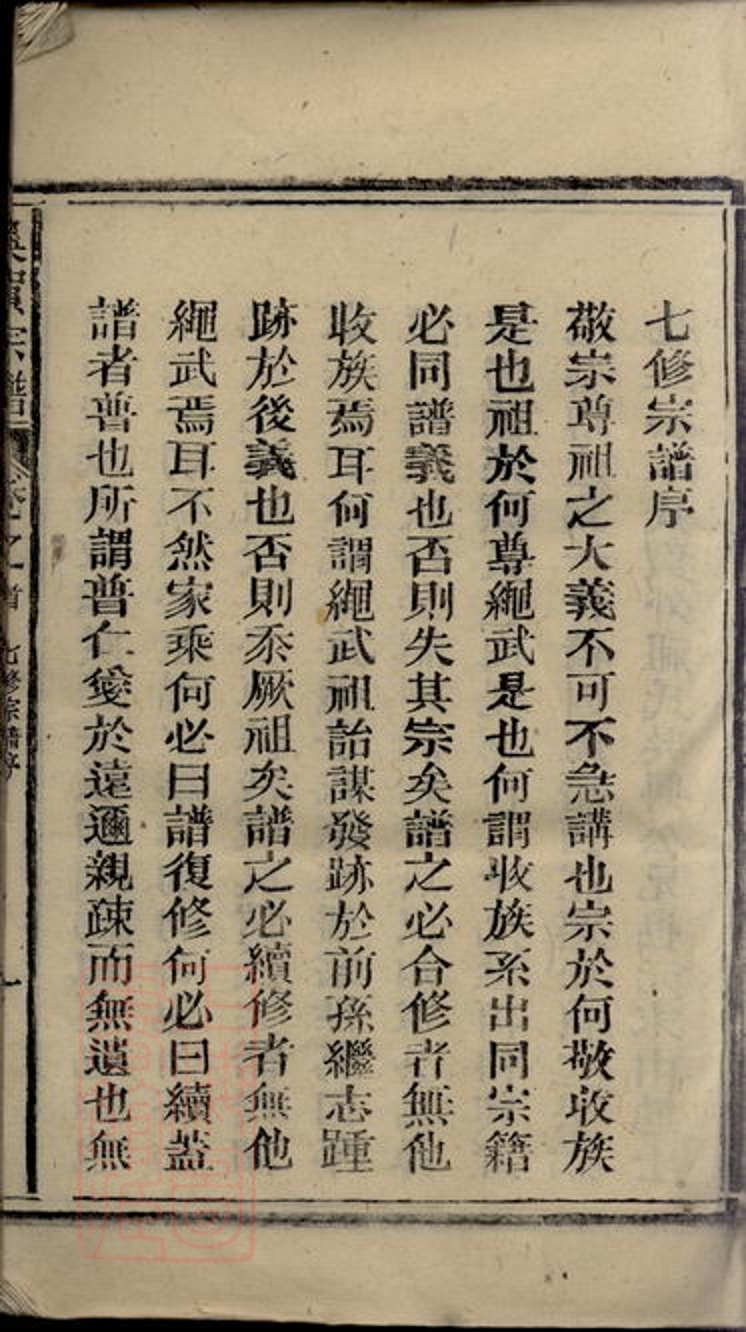 七修宗譜序
敬宗尊祖之大義不可不急講也宗於何敬收族
是也祖於何尊繩武是也何謂收族系出同宗籍
必同譜義也否則失其宗矣譜之必合修者無他
收族焉耳何謂繩武祖詒謀發跡於前孫繼志踵
跡於後義也否則忝厥祖矣譜之必續修者無他
繩武焉耳不然家乘何必曰譜復修何必曰續蓋
譜者普也所謂普仁愛於遠邇親疎而無遺也無
宗譜
卷之首
七修宗譜序
一